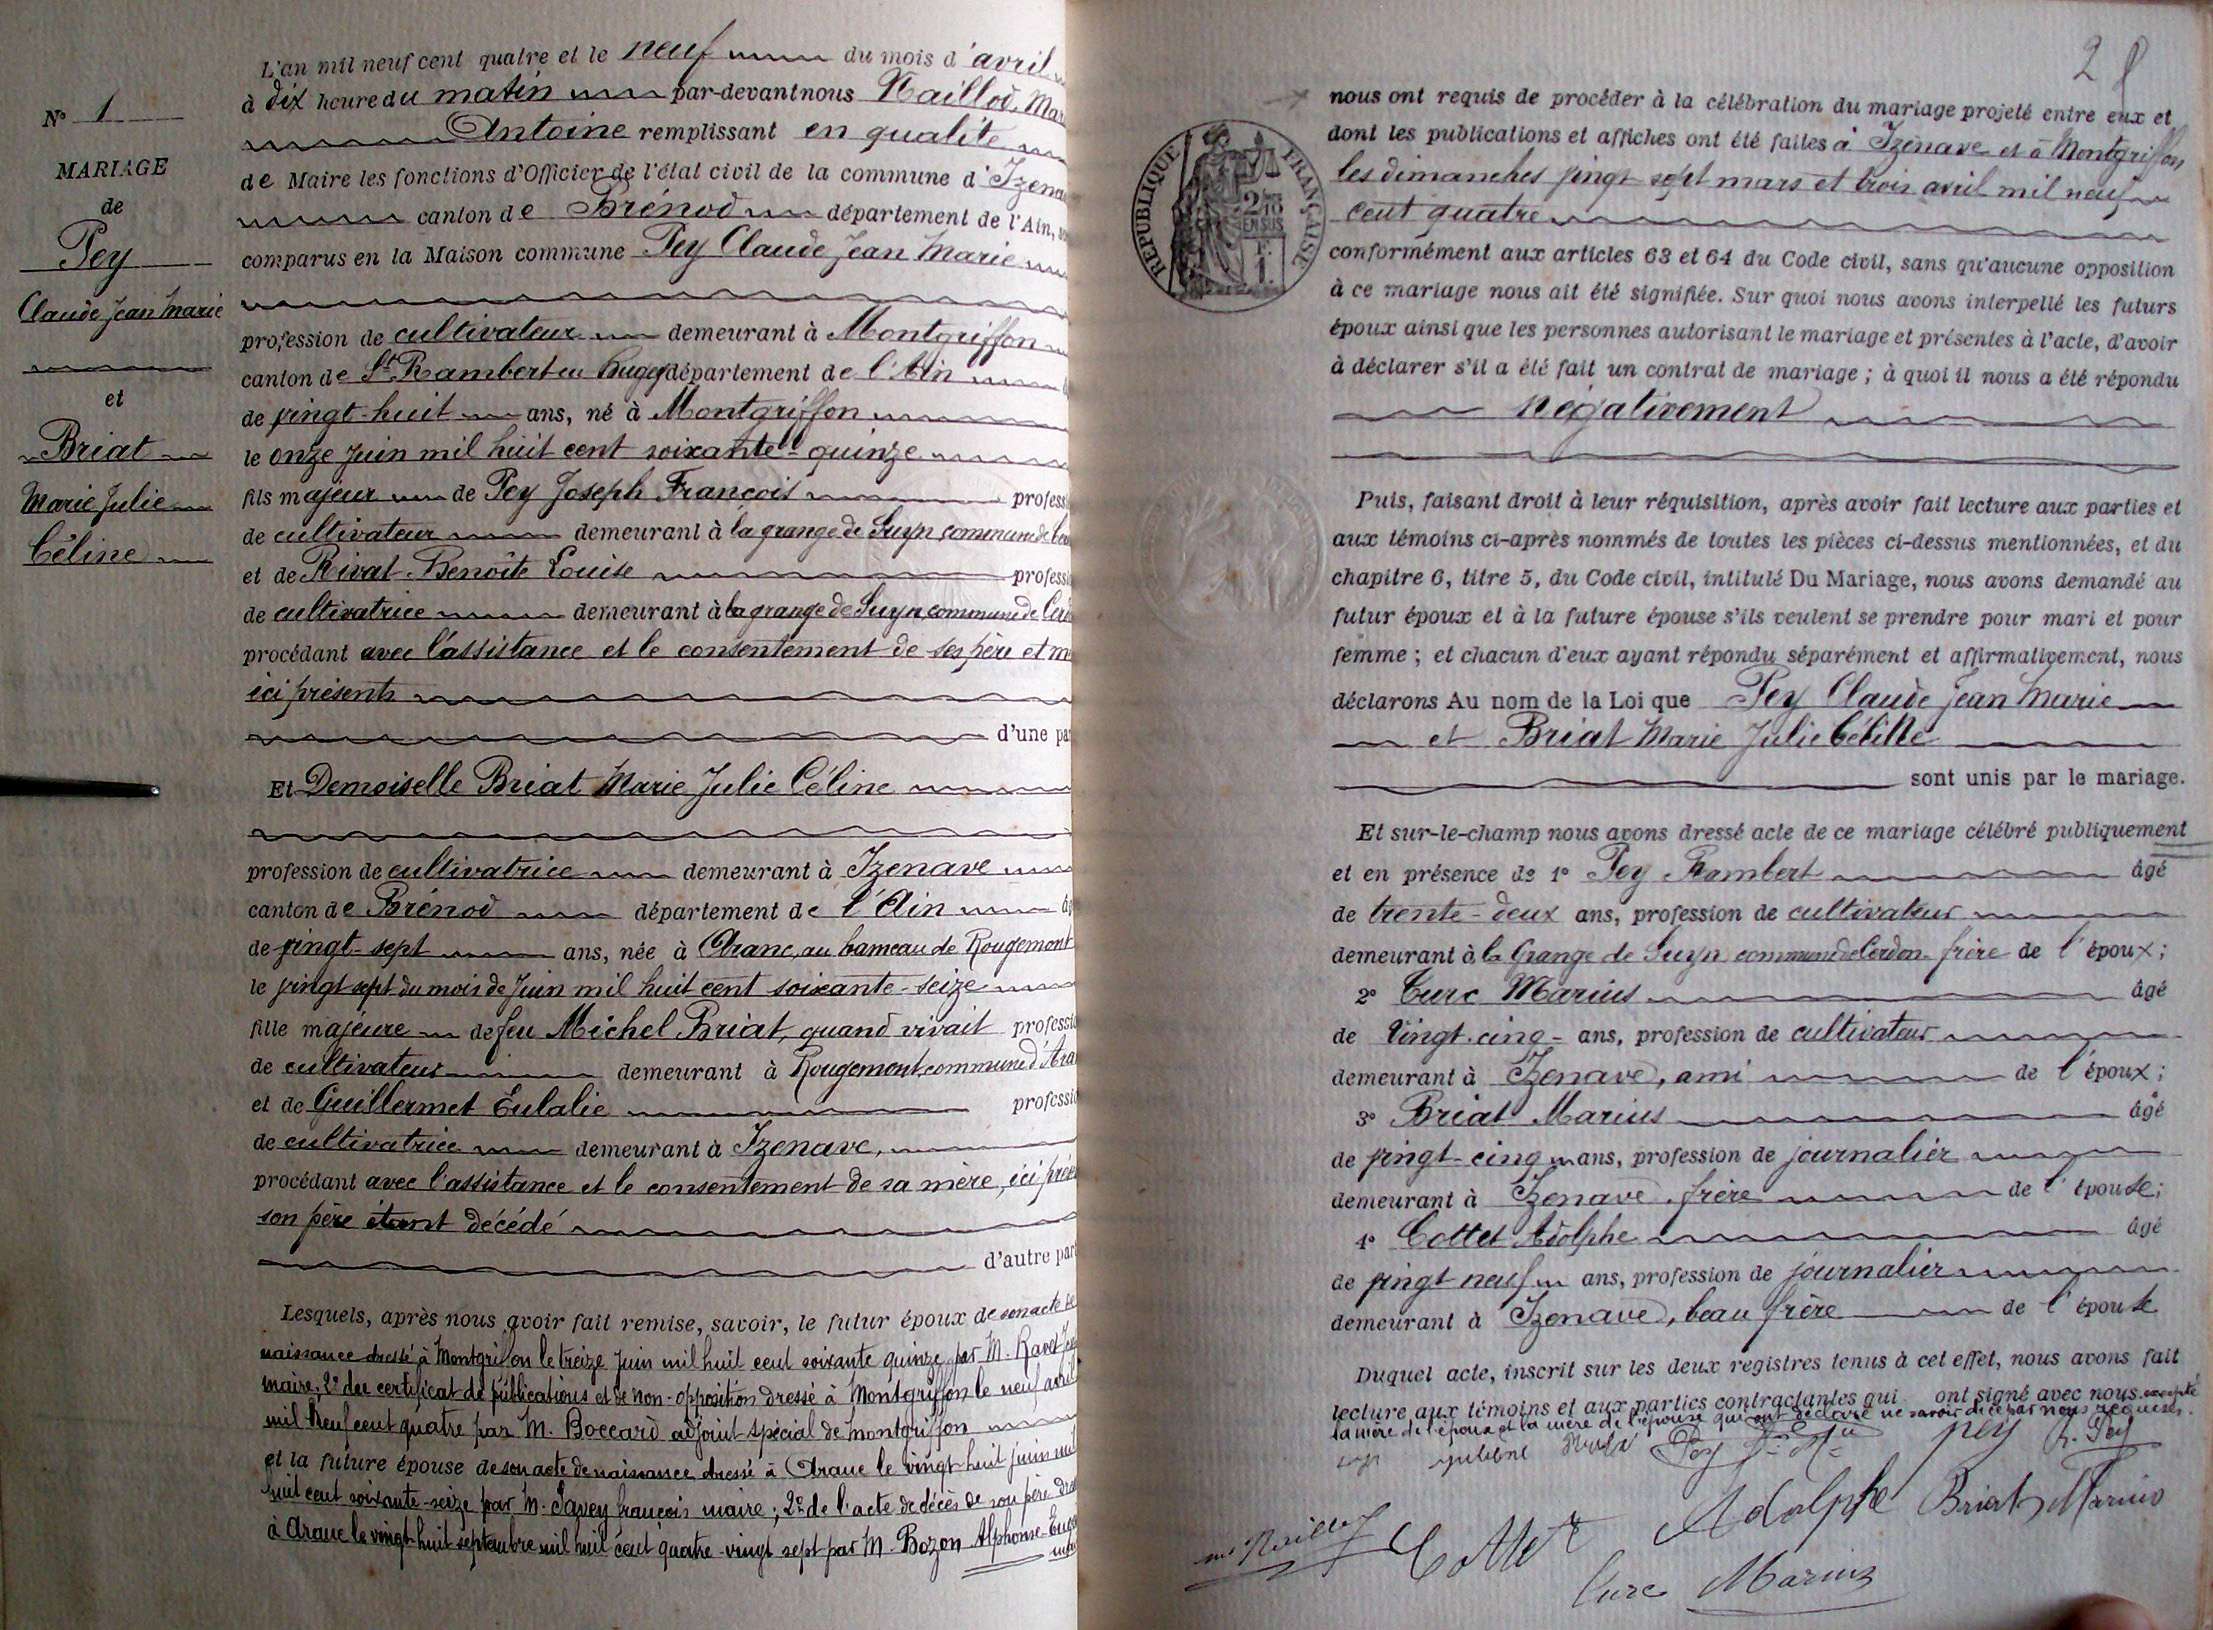 N° 1
MARIAGE
de
Pey
Claude Jean Marie
et
Briat
Marie Julie
Céline
L'an mil neuf cent quatre et le neuf du mois d'avril
à dix heure du matin par-devant nous Maillod, Mar
Antoine remplissant en qualité
de Maire les fonctions d'Officier de l'état civil de la commune d'Izena
canton de Brénod département de l'Ain,
comparus en la Maison commune Pey Claude Jean Marie
profession de cultivateur demeurant à Montgriffon
canton de St Rambert en Bugey département de l'Ain
de vingt-huit ans, né à Montgriffon
le onze Juin mil huit cent soixante-quinze
fils majeur de Pey Joseph François profess
de cultivateur demeurant à la grange de Suyn commune de Cer
et de Rivat Benoîte Louise professi
de cultivatrice demeurant à la grange de Suyn commune de Cerd
procédant avec l'assistance et le consentement de ses père et m
ici présents
d'une pa
Et Demoiselle Briat Marie Julie Céline
profession de cultivatrice demeurant à Izenave
canton de Brénod département de l'Ain
de vingt-sept ans, née à Aranc, au hameau de Rougemont
le vingt sept du mois de Juin mil huit cent soixante-seize
fille majeure de feu Michel Briat, quand vivait professio
de cultivateur demeurant à Rougemont commune d'Ara
et de Guillermet Eulalie professio
de cultivatrice demeurant à Izenave,
procédant avec l'assistance et le consentement de sa mère, ici prése
son père étant décédé
d'autre part
Lesquels, après nous avoir fait remise, savoir, le futur époux de son acte de
naissance dressé à Montgriffon le treize Juin mil huit cent soixante quinze par M. Ravet
maire, 2° du certificat de publications et de non-opposition dressé à Montgriffon le neuf avril
mil neuf cent quatre par M. Boccard adjoint spécial de Montgriffon
et la future épouse de son acte de naissance dressé à Aranc le vingt huit juin mil
huit cent soixante-seize par M. Savey françois maire ; 2° de l'acte de décès de son père dre
à Aranc le vingt-huit septembre mil huit cent quatre-vingt sept par M. Bozon Alphonse-Eug
2
RÉPUBLIQUE FRANÇAISE
nous ont requis de procéder à la célébration du mariage projeté entre eux et
dont les publications et affiches ont été faites à Izenave et à Montgriffon
les dimanches vingt sept mars et trois avril mil neuf
cent quatre
conformément aux articles 63 et 64 du Code civil, sans qu'aucune opposition
à ce mariage nous ait été signifiée. Sur quoi nous avons interpellé les futurs
époux ainsi que les personnes autorisant le mariage et présentes à l'acte, d'avoir
à déclarer s'il a été fait un contrat de mariage ; à quoi il nous a été répondu
négativement
Puis, faisant droit à leur réquisition, après avoir fait lecture aux parties et
aux témoins ci-après nommés de toutes les pièces ci-dessus mentionnées, et du
chapitre 6, titre 5, du Code civil, intitulé Du Mariage, nous avons demandé au
futur époux et à la future épouse s'ils veulent se prendre pour mari et pour
femme ; et chacun d'eux ayant répondu séparément et affirmativement, nous
déclarons Au nom de la Loi que Pey Claude Jean Marie
et Briat Marie Julie Céline
sont unis par le mariage.
Et sur-le-champ nous avons dressé acte de ce mariage célébré publiquement
et en présence de 1° Pey Rambert âgé
de trente-deux ans, profession de cultivateur
demeurant à la Grange de Suyn commune de Cerdon frère de l'époux ;
2° Curc Marius âgé
de vingt-cinq ans, profession de cultivateur
demeurant à Izenave, ami de l'époux ;
3° Briat Marius âgé
de vingt-cinq ans, profession de journalier
demeurant à Izenave, frère de l'épouse ;
4° Cottet Adolphe âgé
de vingt neuf ans, profession de journalier
demeurant à Izenave, beau frère de l'épouse
Duquel acte, inscrit sur les deux registres tenus à cet effet, nous avons fait
lecture aux témoins et aux parties contractantes qui ont signé avec nous excepté
la mère de l'époux et la mère de l'épouse qui ont déclaré ne savoir de ce par nous requises.
Pey
pey
R. Pey
Cottet Adolphe Briat Marius
Curc Marius